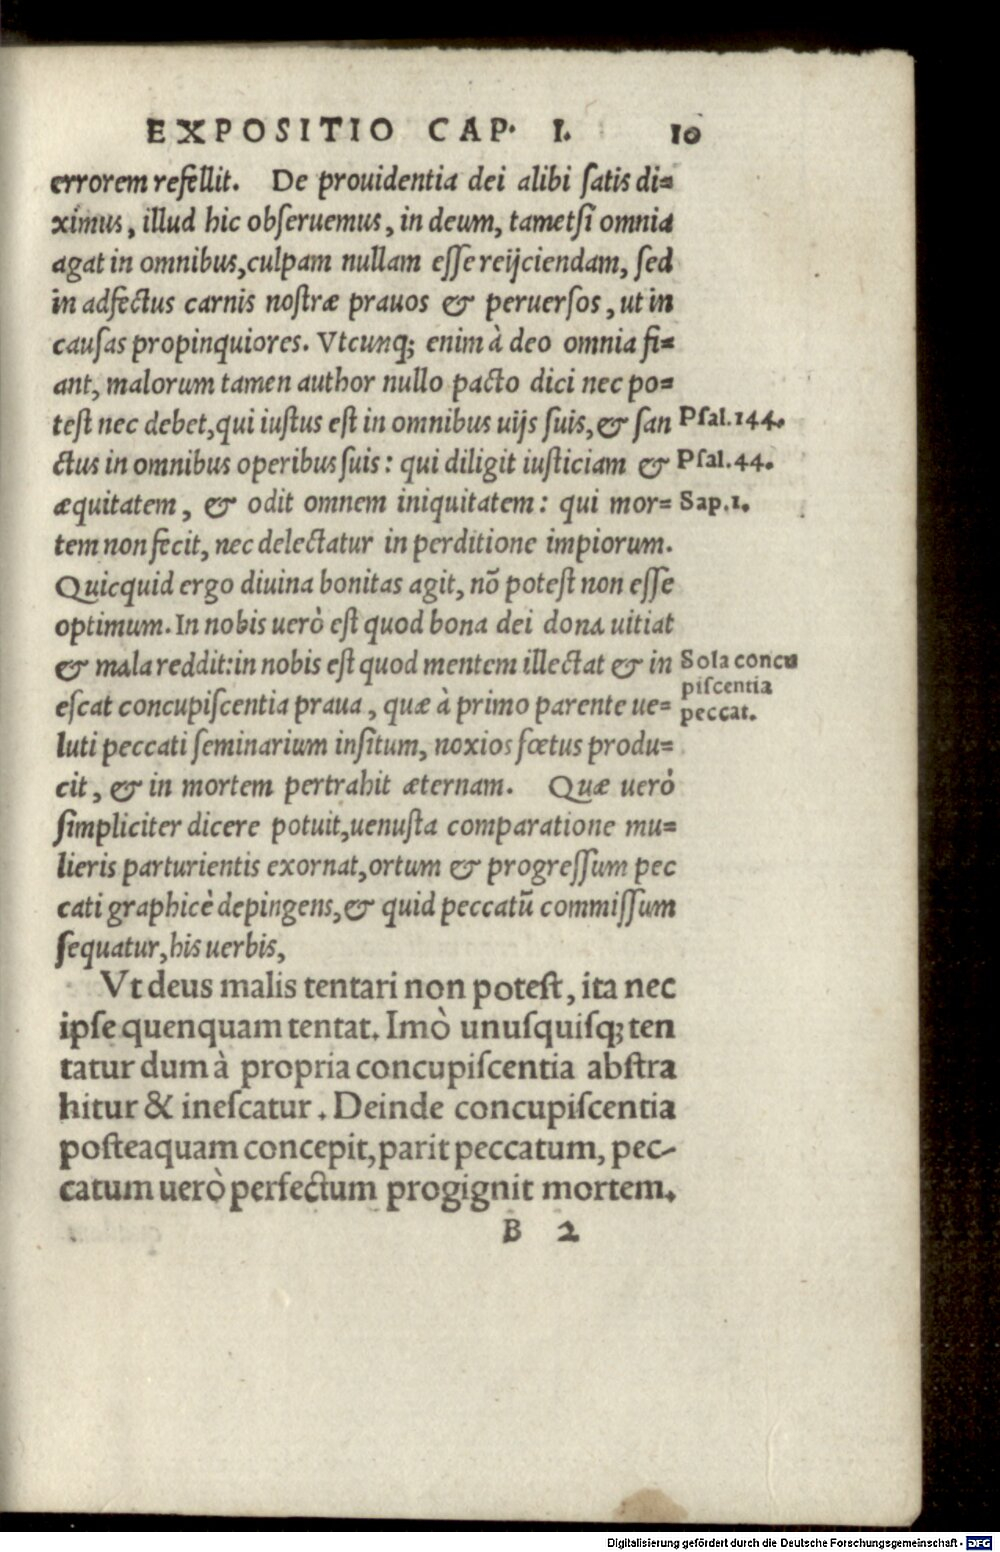 EXPOSITIO CAP. I. 10
errorem refellit. De prouidentia dei alibi ſatis di=
ximus, illud hic obſeruemus, in deum, tametſi omnia
agat in omnibus, culpam nullam eſſe reijciendam, ſed
in adfectus carnis noſtræ prauos & peruerſos, ut in
cauſas propinquiores. Vtcunq; enim à deo omnia fi=
ant, malorum tamen author nullo pacto dici nec po=
teſt nec debet, qui iuſtus eſt in omnibus uijs ſuis, & ſan
Pſal.144.
ctus in omnibus operibus ſuis: qui diligit iuſticiam &
Pſal.44.
æquitatem, & odit omnem iniquitatem: qui mor=
Sap.1.
tem non fecit, nec delectatur in perditione impiorum.
Quicquid ergo diuina bonitas agit, nõ poteſt non eſſe
optimum. In nobis uerò eſt quod bona dei dona uitiat
& mala reddit: in nobis eſt quod mentem illectat & in
Sola concu
eſcat concupiſcentia praua, quæ à primo parente ue=
piſcentia
peccat.
luti peccati ſeminarium inſitum, noxios fœtus produ=
cit, & in mortem pertrahit æternam. Quæ uerò
ſimpliciter dicere potuit, uenuſta comparatione mu=
lieris parturientis exornat, ortum & progreſſum pec
cati graphicè depingens, & quid peccatũ commiſſum
ſequatur, his uerbis,
Vt deus malis tentari non poteſt, ita nec
ipſe quenquam tentat. Imò unuſquiſq; ten
tatur dum à propria concupiſcentia abſtra
hitur & ineſcatur. Deinde concupiſcentia
poſteaquam concepit, parit peccatum, pec-
catum uerò perfectum progignit mortem.
B 2
Digitalisierung gefördert durch die Deutsche Forschungsgemeinschaft - DFG